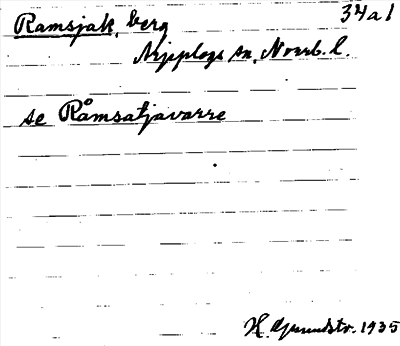 34a1
Ramsjak, berg
Arjeplogs sn, Norrb. l.
se Råmsatjavarre
H. Grundstr. 1935